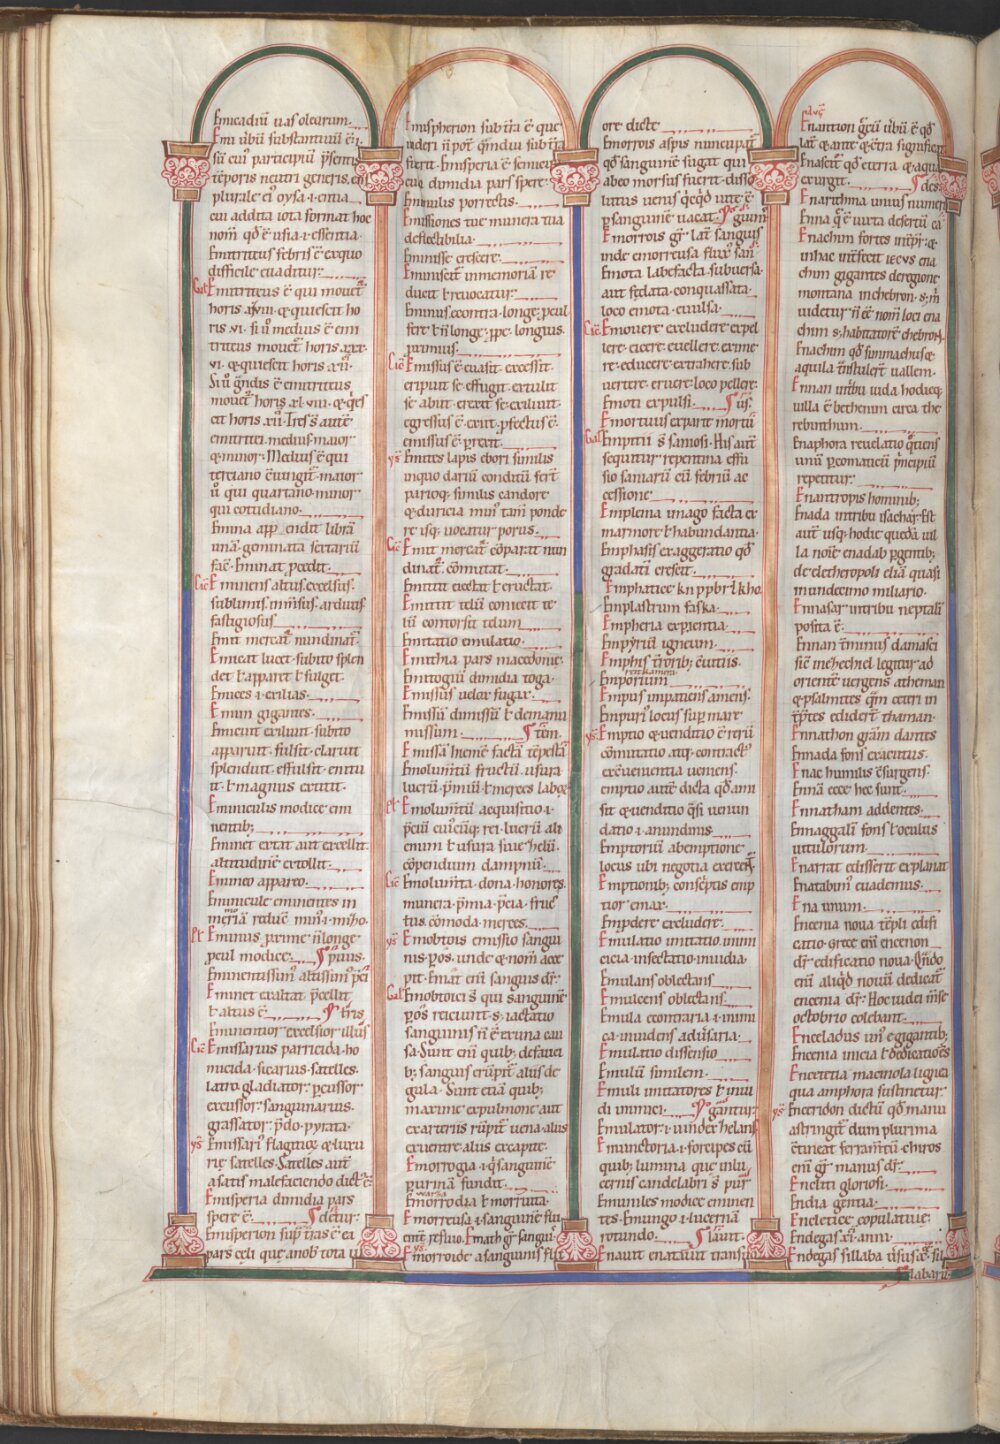 Emicadiū uas olearum.
Emi ūbū substantiuū ē i.
sū eui participiū p̄sentis
tēporis neutri generis. ens
plurale ei oysa .i. entia
cui addita iota format hoc
nom̄ qđ ē usia .i. essentia.
Emitriteus febris ē ex quo
difficile euaditur.
Gal Emitriteus ē qui mouet̄
horis xviii. & quiescit ho
ris vi. si ū medius ē emi
triteus mouet̄ horis xxx
vi. & quiescit horis xii.
Si ū grandis ē emitriteus
mouet̄ horis xl viii. & q̄es
cit horis xii. Tres s̄ aute
emitritei. medius. maior
& minor. Medius ē qui
terciano ēiungit̄. maior
ū qui quartano. minor
qui cotudiano.
Emina app̄endit librā
unā. geminata sextariū
fac̄. Eminat p̄cedit.
Cic̄ Eminens altus. excelsus.
sublimis. inm̄sus. arduus
fastigiosus
Emit mercat̄ nundinat̄.
Emicat lucet. subito splen
det ł apparet ł fulget.
Emices .i. exilias.
Emim gigantes.
Emicuit exiliuit. subito
apparuit. fulsit. claruit
splenduit. effulsit. enitu
it. ł magnus extitit.
Eminiculis modice emi
nentib;
Eminet extat aut excellit.
altitudinē extollit.
Emineo appareo.
Eminicule eminentes in
Pł Eminus p̄rime ñ longe
p̄cul modice. p̄ius.
Eminentissim̄ altissim̄ p̄ci
Eminet exaltat p̄cellit
ł altus ē
Eminentior excelsior illus
Cic̄ Emissarius parricida. ho
micida. sicarius. satelles.
latro. gladiator. p̄cussor
excussor. sanguinarius.
grassator. p̄do. pyrata.
ys̄ Emissari flagitioꝗ & luxu
rie satelles. Satelles aut̄
a satis malefaciendo dict̄ ē
Emisperia dimidia pars
spere ē. dr̄tur:
Emisperion sup̄ tr̄as ē ea
pars celi que a nob tota ui
Emisperion sub tr̄a ē que
uideri ñ pot̄ q̄mdiu sub tr̄a
fuerit. Emisperia ē semicir
culi dimidia pars spere.
Eminulis porrectis.
Emissiones tue munera tua
delectabilia.
Eminisse crescere.
Eminiscit̄ in memoriā re
ducit ł reuocatur.
Eminus. econtra. longe. p̄cul
fere ł ñ longe. p̄pe. longius
p̄rimius.
Cic̄ Emissus ē euasit. excessit.
eripuit se. effugit. extulit
se. abiit. erexit se. exiliuit.
egressus ē. exiit. p̄fectus ē.
emissus ē. p̄rexit.
ys̄ Emites lapis ebori similis
in quo dariū conditū fert̄
parioq; similis candore
& duricia min̄ tam̄ ponde
re isq; uocatur porus.
Cic̄ Emit mercat̄ cōparat nun
dinat̄. cōmutat.
Emittit eiectat ł eructat.
Emittit telū conicit te
lū contorsit telum.
Emitatio emulatio.
Emithia pars macedonie.
Emitogiū dimidia toga.
Emissus uelox fugax.
Emissū dimissū ł de manu
missum. tem̄.
Emissā hiemē factā tēpestā
Emolum̄tū fructū. usura
lucrū. p̄miū ł merces laboꝝ
Pł Emolum̄tū acquisitio .i.
p̄ciū cui'cūq; rei. lucrū ali
enum ł usura siue helū.
cōpendium dampnū.
Cic̄ Emolum̄ta. dona. honores.
munera. p̄mia. p̄cia. fruc
tus. cōmoda. merces.
ys̄ Emobtois emissio sangui
nis. p̄ os. unde & nom̄ acce
pit. Emat eni sanguis dr̄.
Gal Emobtoici s̄ qui sanguinē
p̄ os reiciunt. s. iactatio
sanguinis ñ ē ex una cau
sa. Sunt eni quib; de faucı
b; sanguis erūpit̄ aliis de
gula. Sunt etiā quib;
maxime ex pulmone. aut
ex arteriis rūpit̄ uena. aliis
ex uentre. aliis ex capite.
Emorrogia .i. q̄ sanguinē
p̄ urinā fundit.
Emorrodia ł morruita.
Emoreusa .i. sanguinē flu
ente reseuio. Emath gr̄ sanguı̄.
Emorroide a sanguinis flu
ore dicte
Emorrois aspis nuncupat̄
qđ sanguinē sugat qui
ab eo morsus fuerit. disso
lutis uenis q̄cqđ uite ē
p̄ sanguinē euacat. gium̄
Emorrois gr̄. lat̄ sanguis
inde emorreusa fluxˀ san̄.
Emota labefacta. subuersa.
aut fedata. conquassata.
loco emota. euulsa.
Cic̄ Emouere excludere. expel
lere. eicere. euellere. exime
re. educere. extrahere. sub
uertere. eruere. loco pellere.
Emoti expulsi. us̄.
Emortuus ex parte mortu
Gal Empiii s̄ famosi. His aut̄
sequitur repentina effu
sio saniarū cū febriū ac
cessione
Emplema imago facta ex
marmore ł habundantia.
Emphasis exaggeratio qđ
gradatı̄ crescit.
Emphatice knppbrłkho.
Emplastrum faska.
Empheria exp̄ientia.
Empyriū igneum.
Emphis terrorib; ciuius.
Emporium
Empus impatiens amens.
Empuri locus sup̄ mare
ys̄ Emptio & uenditio ē rerū
cōmutatio atq; contractˀ
ex cōuenientia ueniens.
emptio aut̄ē dicta qđ a mi
sit & uenditio q̄si uenun
datio .i. a nundinis
Emptoriū ab emptione.
locus ubi negotia exercet̄.
Emptionib; conscriptis emp
tior emax.
Empdere excludere.
Emulatio imitatio. inimi
cicia. insectatio. inuidia.
Emulans oblectans
Emulcens oblectans.
Emula econtraria .i. inimi
ca. inuidens. adūsaria.
Emulatio dissensio
Emulū similem.
Emuli imitatores ł inui
di. inimici. gantur.
Emulator .i. uindex. helans
Emunctoria .i. forcipes cū
quib; lumina que inlu
cernis candelabri s̄ pur̄
Emuniles modice eminen
tes. Emungo .i. lucernā
rotundo. lauit.
Enauit enatauit. transiuit
Enantion grecū ūbū ē qđ
lat̄ & ante & cōtra significat
Enascit̄ qđ e terra & aqua
exurgit. des.
Enarithma unius numeri
Enna q̄ ē iuxta desertū ca
Enachim fortes int̄pr̄. &
in hac int̄fecit iecus ena
chim gigantes de regione
montana in chebron. s; m̄
uidetur ñ ēē nom̄ loci ena
chim. s. habitatorē chebron.
Enachim qđ simmachus &
aquila t̄nstulert̄ uallem.
Ennan in tribu iuda hodieq;
uilla ē bethenim circa the
rebinthum.
Enaphora reuelatio q̄tiens
unū p̄ comaticū p̄ncipiū
repetitur.
Enantropis hominib;
Enada in tribu isachar. Est
aut̄ usq; hodie quedā uil
la noīe enadab p̄gentib;
de eletheropoli eliā quasi
in undecimo miliario.
Ennasar in tribu neptali
posita ē.
Ennan t̄minus damasci
sic̄ in ezechiel legitur ad
orientē uergens atheman
& psalmites q̄m ceteri in
t̄p̄tes ediderı̄t thaman.
Ennathon gr̄am dantes
Ennada fons exaentus.
Enac humilis ēsurgens.
Ennā ecce hec sunt.
Ennatham addentes.
Ennaggalı̄ fons ł oculus
uitulorum.
Enarrat edisserit explanat
Enatabim̄ euademus.
Ena unum.
Encenia noua tēpli edifi
catio. Grece eni encenon
dr̄ edificatio noua. Qn̄do
eni aliqđ nouū dedicat̄
encenia dr̄. Hoc iudei m̄se
octobrio colebant.
Enceladus un̄ e gigantib;
Encenia inicia ł dedicationes
Encetetia machiola lignea
qua amphora sustinetur.
ys̄ Enceridon dictū qđ manu
astringit̄ dum plurima
ētineat ferram̄tū. chiros
eni gr̄ manus dr̄.
Encliti gloriosi.
Endia gentia.
Encletice copulatiue.
Endegas xi. anni.
Endegas sillaba ūsus & sil
labaru